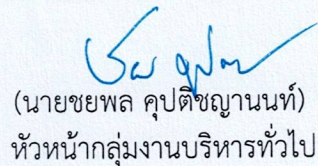 (นายชยพล คุปติชญานนท์)
หัวหน้ากลุ่มงานบริหารทั่วไป